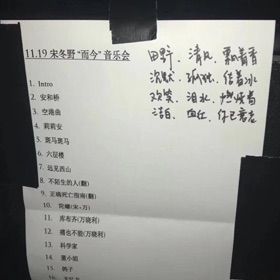 11.19 宋冬野“而今”音乐会
1. Intro
2. 安和桥
3. 空港曲
4. 莉莉安
5. 斑马斑马
6. 六层楼
7. 远见西山
8. 不陌生的人(翻)
9. 正确死亡指南(翻)
10. 陀螺(宋+万)
11. 库布齐(万晓利)
12. 禧也不能(万晓利)
13. 科学家
14. 董小姐
15. 鸽子
16.
田野、清风、飘着香
沉默、孤独、结着冰
欢笑、泪水、燃烧着
洁白、血红、你已苍老